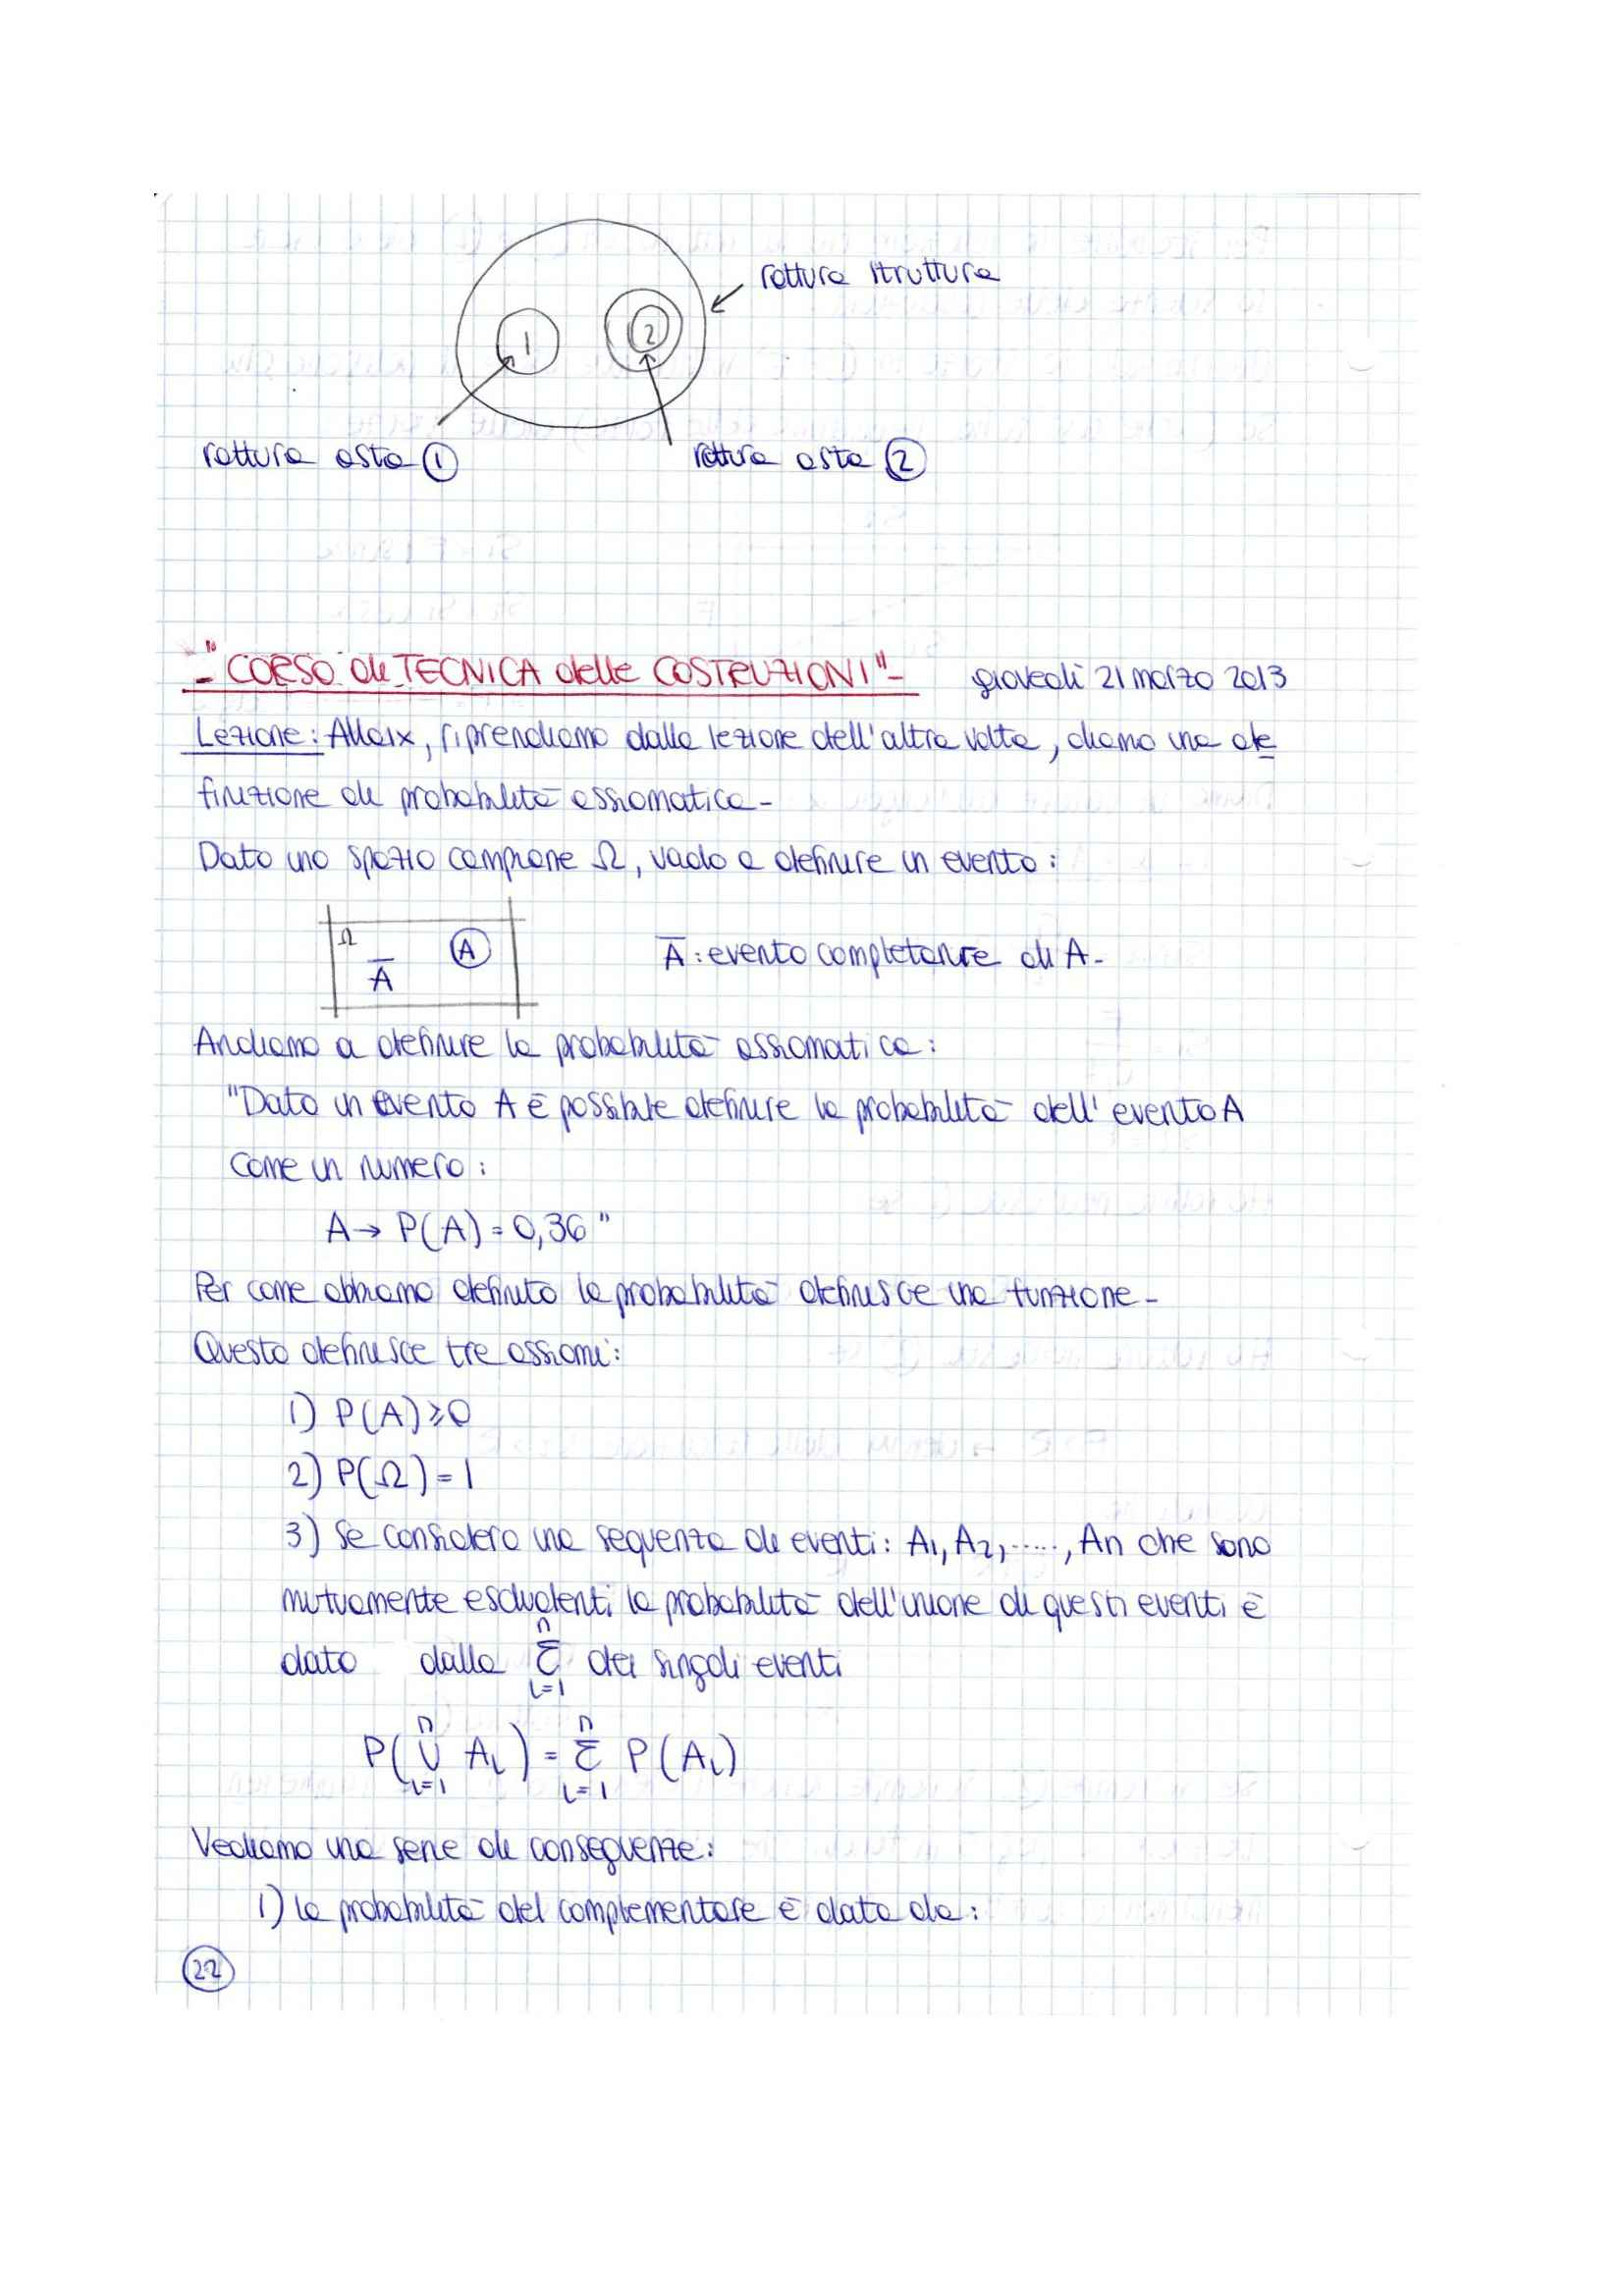 rottura struttura
1
2
rottura asta ①
rottura asta ②
-"CORSO di TECNICA delle COSTRUZIONI"-
giovedì 21 marzo 2013
Lezione: Allaix, riprendiamo dalla lezione dell'altra volta, diamo una de
finizione di probabilità assiomatica-
Dato uno spazio campione Ω, vado a definire un evento:
Ω
A
A̅
A̅: evento completante di A-
Andiamo a definire la probabilità assiomatica:
"Dato un evento A è possibile definire la probabilità dell'evento A
come un numero:
A→ P(A) = 0,36"
Per come abbiamo definito la probabilità definisce una funzione-
Questo definisce tre assiomi:
1) P(A)⩾0
2) P(Ω)=1
3) Se considero una sequenza di eventi: A1, A2, ....., An che sono
mutuamente escludenti la probabilità dell'unione di questi eventi è
dato dalla n Σ i=1 dei singoli eventi
P( n ∪ i=1 Ai ) = n Σ i=1 P(Ai)
Vediamo una serie di conseguenze:
1) la probabilità del complementare è data da:
22